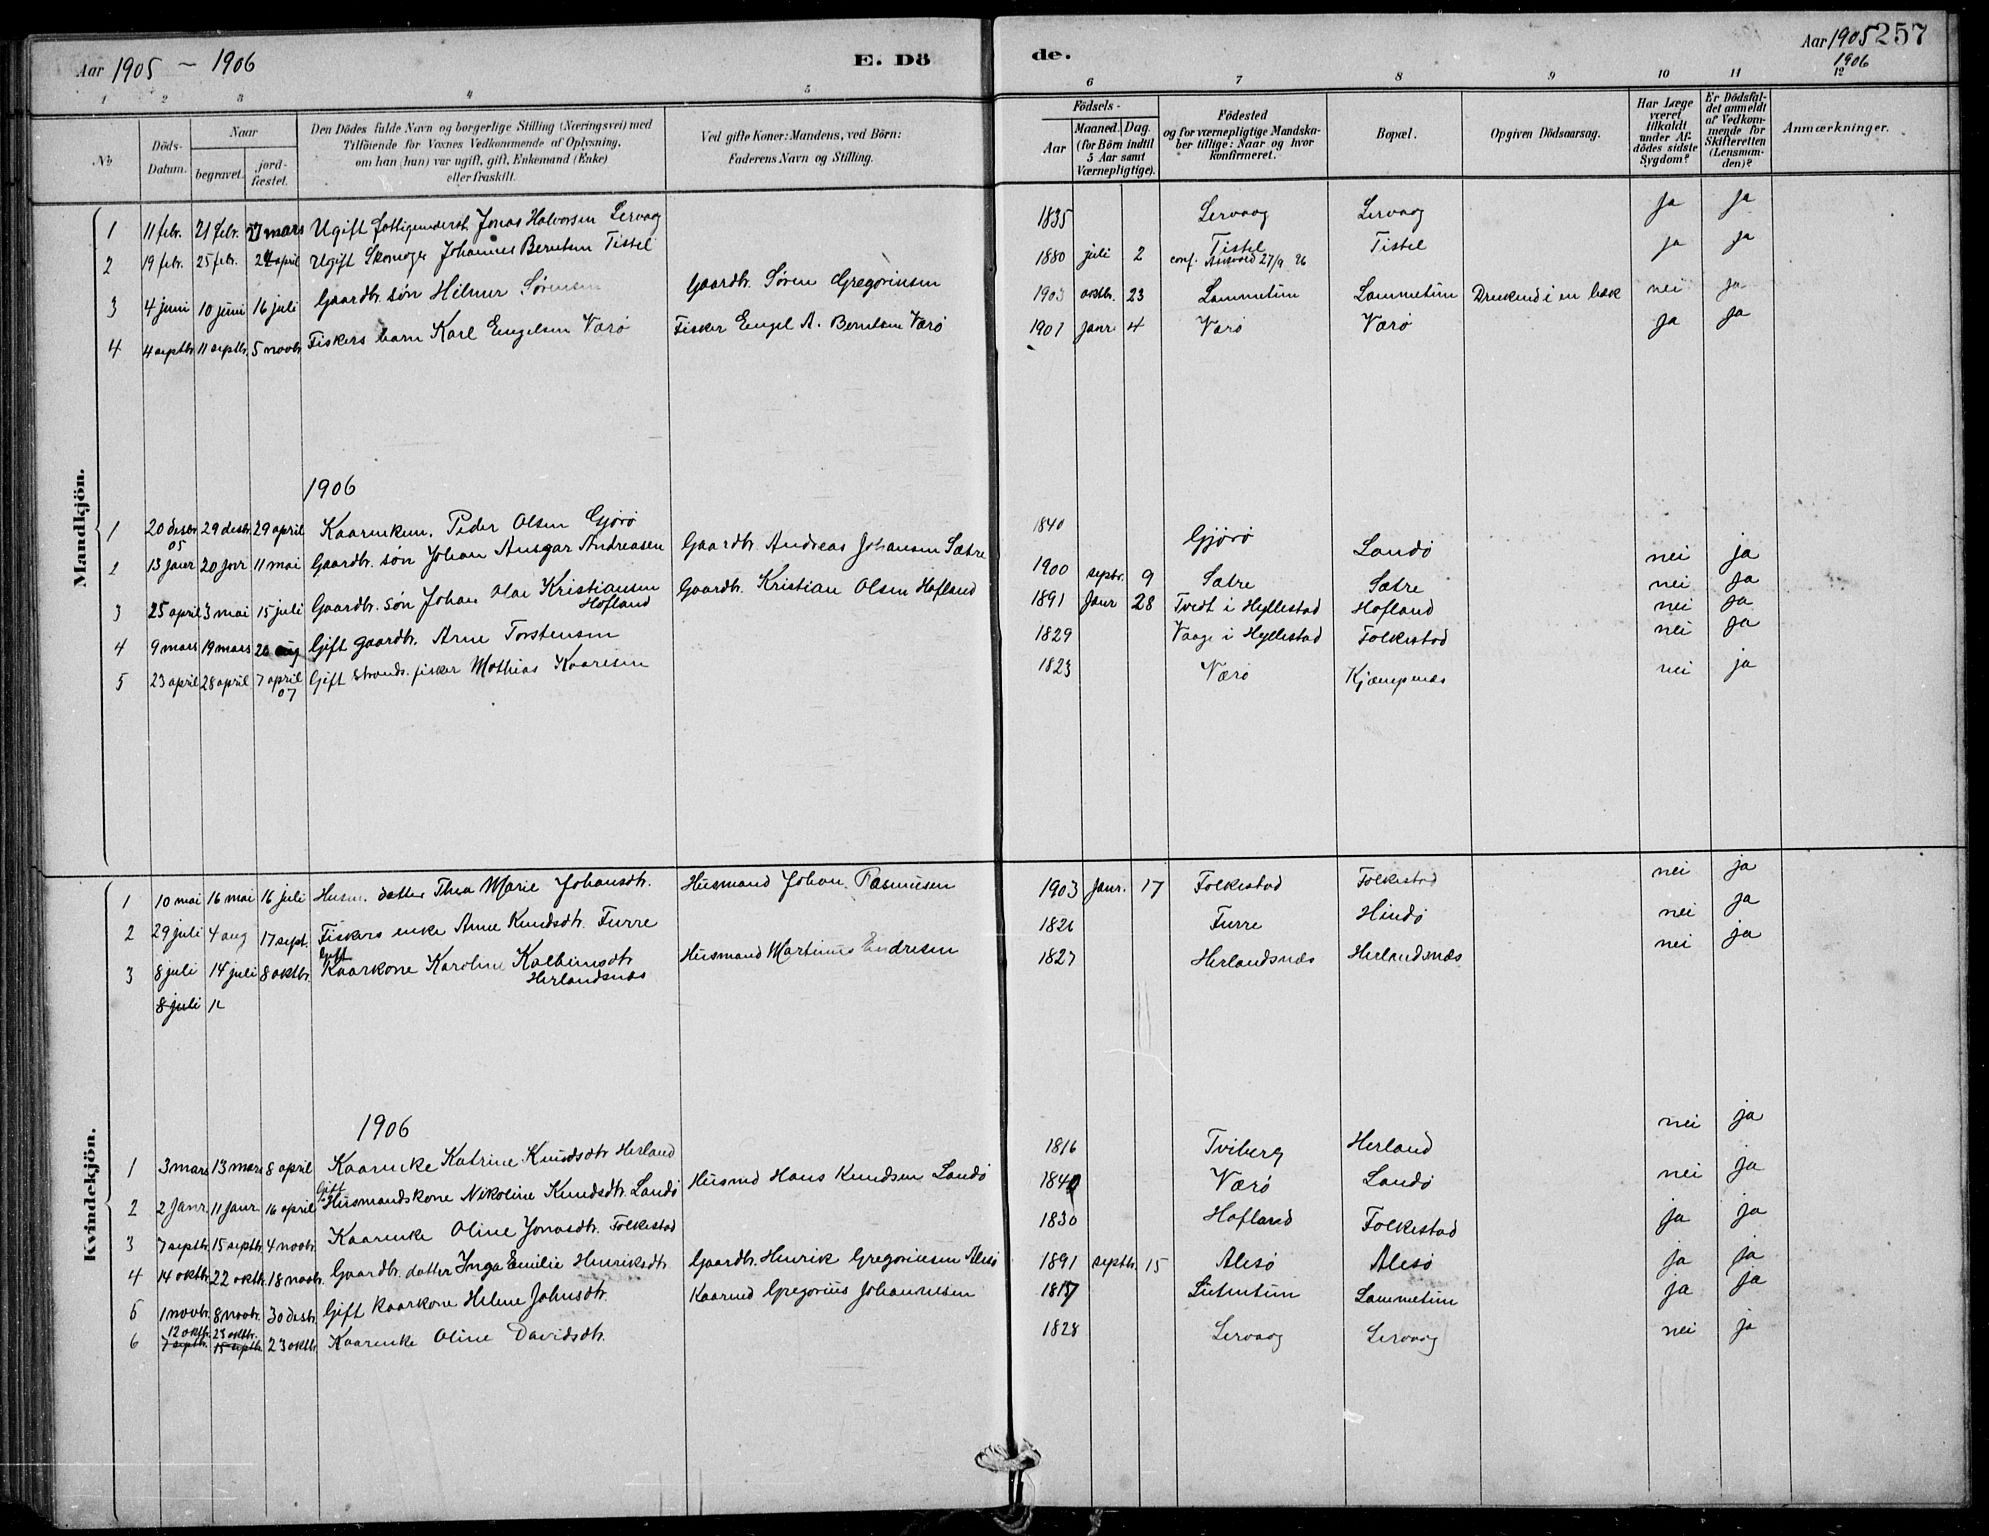 Aar 1905 - 1906
E. Dö
de.
Aar 1905 257
1906
1 2 3 4 5 6 7 8 9 10 11 12
No
Döds-Datum.
Naar
begravet.
jord-fæstet.
Den Dödes fulde Navn og borgerlige Stilling (Næringsvei) med
Tilföiende for Voxnes Vedkommende af Oplysning,
om han (hun) var ugift, gift, Enkemand (Enke)
eller fraskilt.
Ved gifte Koner: Mandens, ved Börn:
Faderens Navn og Stilling.
Födsels-
Aar
Maaned. Dag.
(for Börn indtil
5 Aar samt
Værnepligtige).
Födested
og for værnepligtige Mandska-
ber tillige: Naar og hvor
konfirmeret.
Bopæl.
Opgiven Dödsaarsag.
Har Læge
været
tilkaldt
under Af-
dödes sidste
Sygdom?
Er Dödsfal-
det anmeldt
af Vedkom-
mende for
Skifteretten
(Lensman-
den)?
Anmærkninger.
Mandkjön.
1 11 febr. 21 febr. 27 mars Ugift fattigunderst. Jonas Halvorsen Lervaag 1835 Lervaag Lervaag ja ja
2 19 febr. 25 febr. 24 april Ugift Skomager Johannes Berntsen Tistel 1880 juli 2 Tistel Tistel ja ja
conf. 27/9 96
3 4 juni 10 juni 16 juli Gaardbr. søn Hilmer Sørensen Gaardbr. Søren Gregoriusen 1903 oktbr. 23 Lammetun Lammetun Druknede i en bæk nei ja
4 4 septbr. 11 septbr. 5 novbr. Fiskers barn Karl Engelsen Værø Fisker Engel A. Berntsen Værø 1901 janr. 4 Værø Værø ja ja
1906
1 20 desbr. 05 29 desbr. 29 april Kaarenkem. Peder Olsen Gjørø 1840 Gjørø Landø nei ja
2 13 janr 20 jnr 11 mai Gaardbr. søn Johan Ansgar Andreasen Gaardbr. Andreas Johansen Sætre 1900 septbr. 9 Sætre Sætre nei ja
3 25 april 3 mai 15 juli Gaardbr. søn Johan Olai Kristiansen Hofland Gaardbr. Kristian Olsen Hofland 1891 Janr 28 Tvedt i Hyllestad Hofland nei ja
4 9 mars 19 mars 26 aug Gift gaardbr. Arne Torstensen 1829 Vaage i Hyllestad Folkestad nei ja
5 23 april 28 april 7 april 07 Gift strands. fisker Mathias Kaaresen 1823 Værø Kjæmpenæs nei ja
Kvindekjön.
1 10 mai 16 mai 16 juli Husm. datter Thea Marie Johansdtr. Husmand Johan Rasmusen 1903 Janr. 17 Folkestad Folkestad nei ja
2 29 juli 4 aug 17 sept. Fiskers enke Anne Knudsdtr. Furre 1826 Furre Hindø nei ja
3 8 juli 14 juli 8 oktbr. Gift Kaarkone Karoline Kolbeinsdtr Herlandsnæs Husmand Martinus Endresen 1827 Herlandsnæs Herlandsnæs nei ja
8 juli 12
1906
1 3 mars 13 mars 8 april Kaarenke Katrine Knudsdtr Herland 1816 Tviberg Herland nei ja
2 2 Janr. 11 janr. 16 april Gift Husmandskone Nikoline Knudsdtr. Landø Husmd Hans Knudsen Landø 1840 Værø Landø nei ja
3 7 septbr. 15 septbr. 4 novbr. Kaarenke Oline Jonasdtr. Folkestad 1830 Hofland Folkestad ja ja
4 14 oktbr. 22 oktbr. 18 novbr. Gaardbr. datter Inga Emilie Henriksdtr Gaardbr. Henrik Gregoriusen Alesø 1891 septbr. 15 Alesø Alesø ja ja
5 1 novbr. 8 novbr. 30 desbr. Gift kaarkone Helene Johnsdtr. Kaarmd Gregorius Johannesen 1817 Lutentun Lammetun ja ja
6 12 oktbr. 7 septbr. 23 oktbr. 15 septbr. 23 oktbr. Kaarenke Oline Davidsdtr. 1828 Lervaag Lervaag nei ja